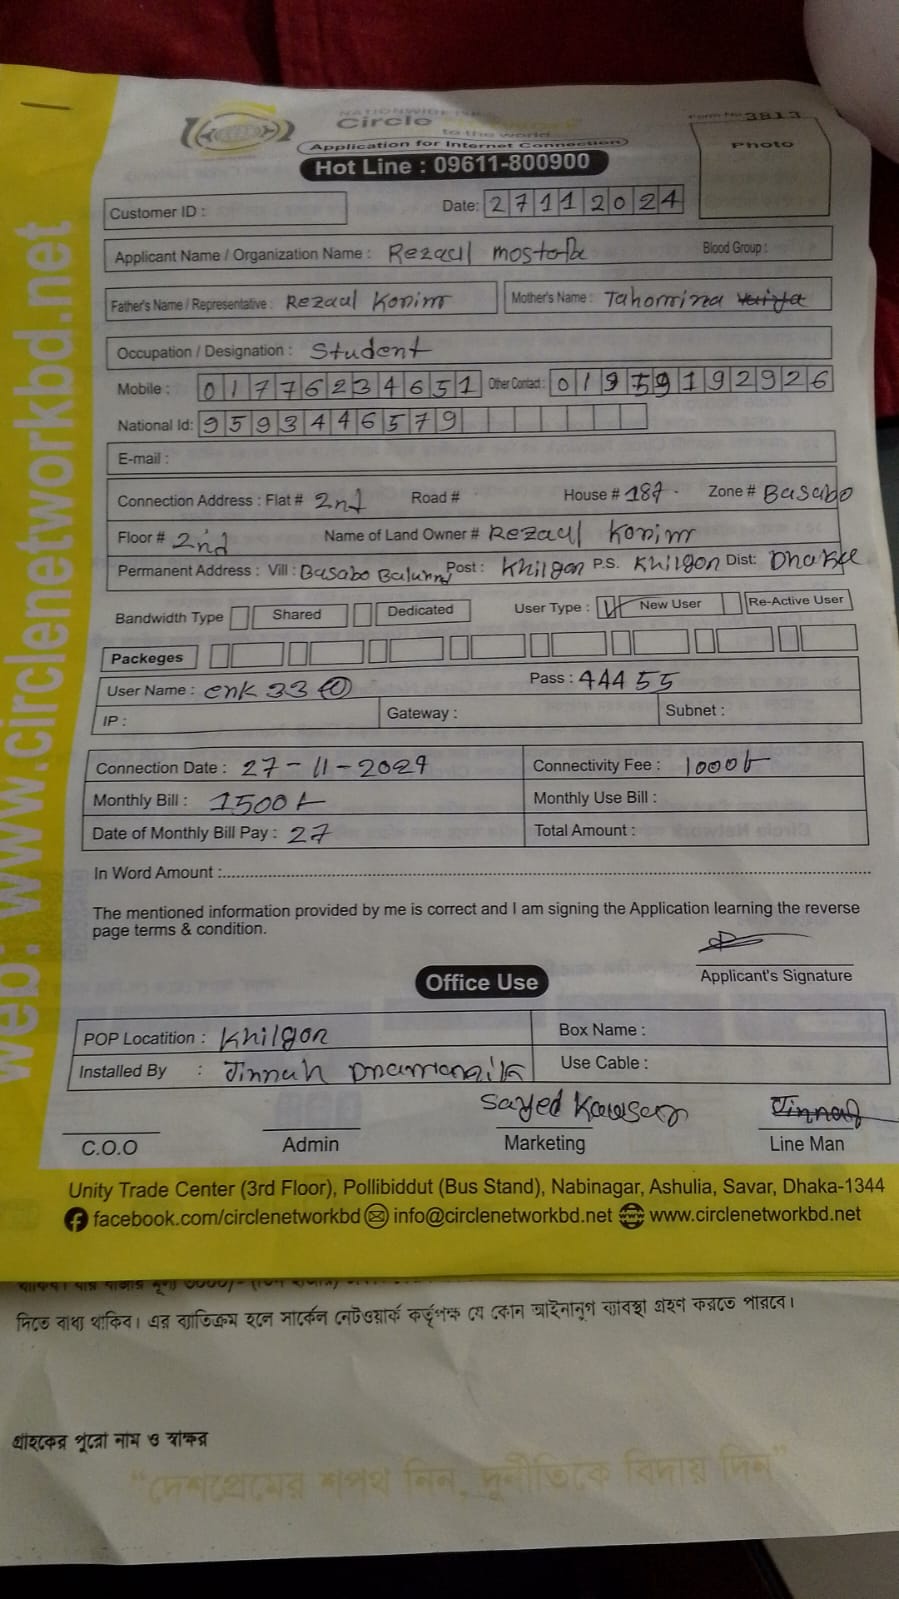 NATIONWIDE
Circle Network
to the world
Form No 3813
Application for Internet Connection
Photo
Hot Line : 09611-800900
Customer ID :
Date: 27112024
Applicant Name / Organization Name : Rezaul mostofa Blood Group :
Father's Name / Representative : Rezaul Konim Mother's Name : Tahomina
Occupation / Designation : Student
Mobile : 01776234651 Other Contact : 01959192926
National Id: 9593446579
E-mail :
Connection Address : Flat # 2nd Road # House # 187 . Zone # Basabo
Floor # 2nd Name of Land Owner # Rezaul Konim
Permanent Address : Vill : Basabo Post : Khilgon P.S. Khilgon Dist: Dhaka
Bandwidth Type Shared Dedicated User Type : New User Re-Active User
Packeges
User Name : cnk 33 Pass : 44455
IP : Gateway : Subnet :
Connection Date : 27-11-2024 Connectivity Fee : 1000t
Monthly Bill : 1500t Monthly Use Bill :
Date of Monthly Bill Pay : 27 Total Amount :
In Word Amount :
The mentioned information provided by me is correct and I am signing the Application learning the reverse
page terms & condition.
Applicant's Signature
Office Use
POP Locatition : Khilgon Box Name :
Installed By : Jinnah Pramanik Use Cable :
Sayed Kawsar Jinnah
C.O.O Admin Marketing Line Man
Unity Trade Center (3rd Floor), Pollibiddut (Bus Stand), Nabinagar, Ashulia, Savar, Dhaka-1344
facebook.com/circlenetworkbd info@circlenetworkbd.net www.circlenetworkbd.net
web: www.circlenetworkbd.net
দিতে বাধ্য থাকিব। এর ব্যতিক্রম হলে সার্কেল নেটওয়ার্ক কর্তৃপক্ষ যে কোন আইনানুগ ব্যবস্থা গ্রহণ করতে পারবে।
গ্রাহকের পুরো নাম ও স্বাক্ষর
“দেশপ্রেমের শপথ নিন, দুর্নীতিকে বিদায় দিন”